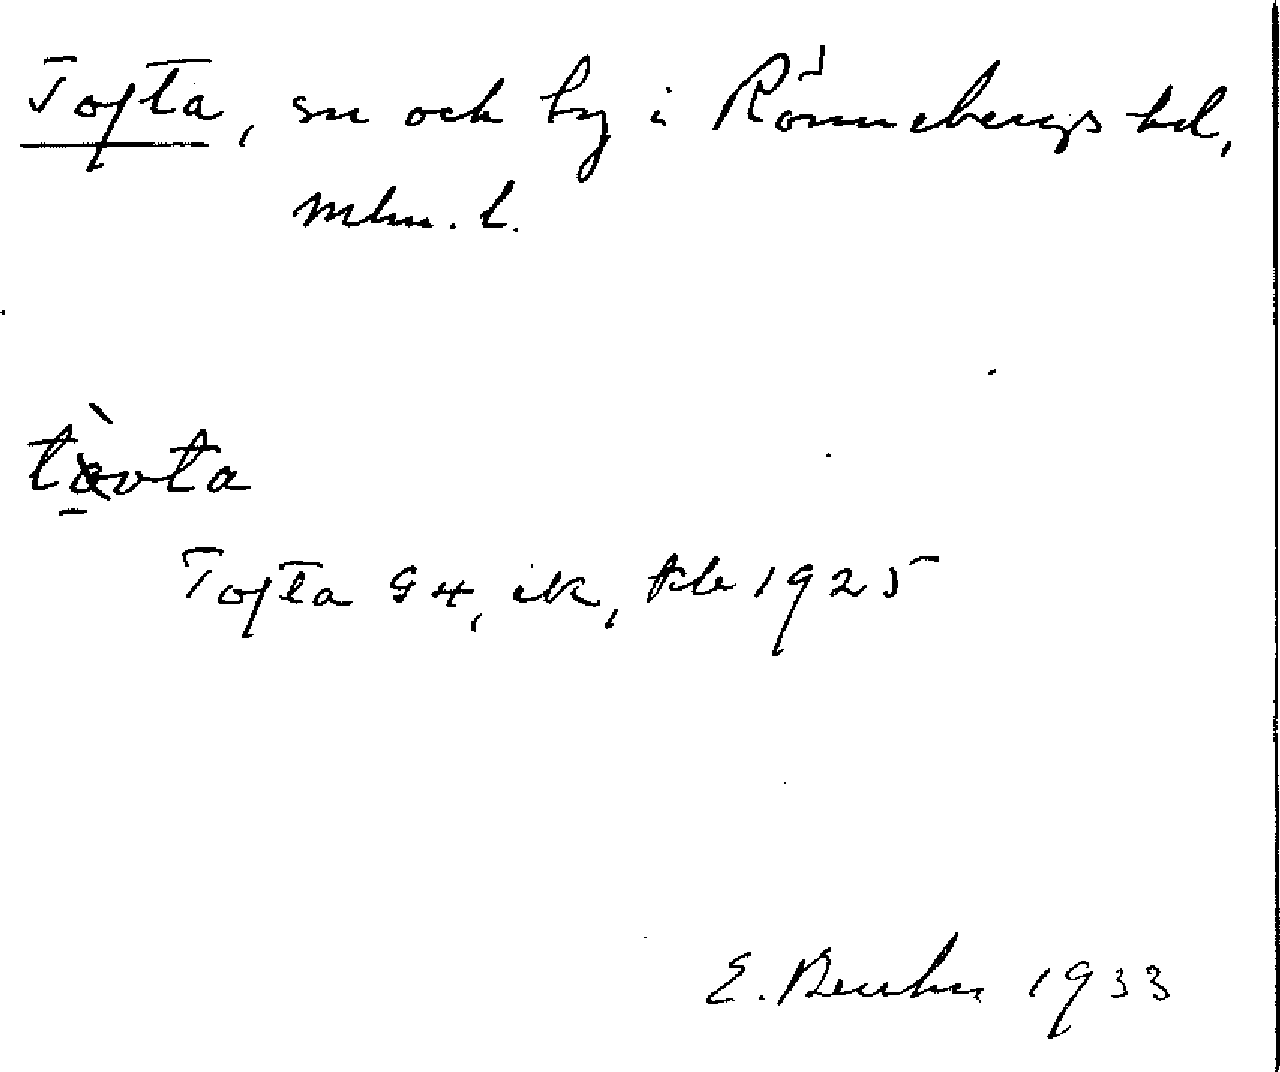 Tofta, sn och by i Rönnebergs hd,
Mlm. l.
Tofta 94, ik,
1925
E. 1933